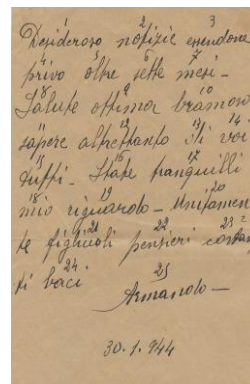 1 2 3
Desideroso notizie essendone
4 5 6 7
privo oltre sette mesi -
8 9 10
Salute ottima bramoso
11 12 13 14
sapere altrettanto di voi
15 16 17
tutti - State tranquilli
18 19 20
mio riguardo - Unitamen
21 22 23
te figliuoli pensieri costan
24 25
ti baci
Armando -
30.1.944